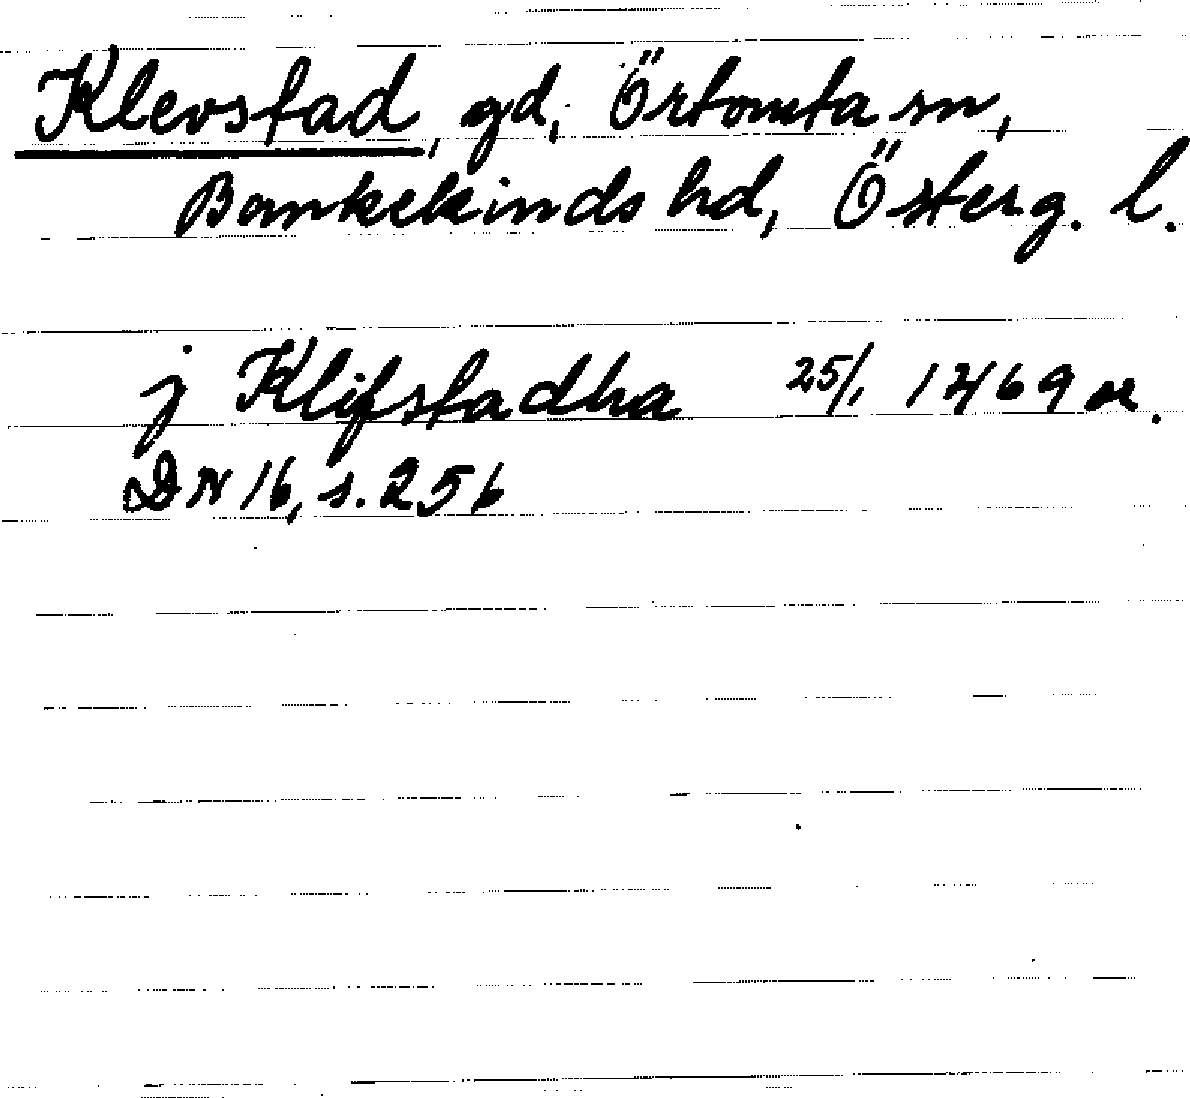 Klevstad, gd, Örtomta sn,
Bankekinds hd, Österg. l.
j Klifstadha 25/1 1469 or.
DN 16, s. 256